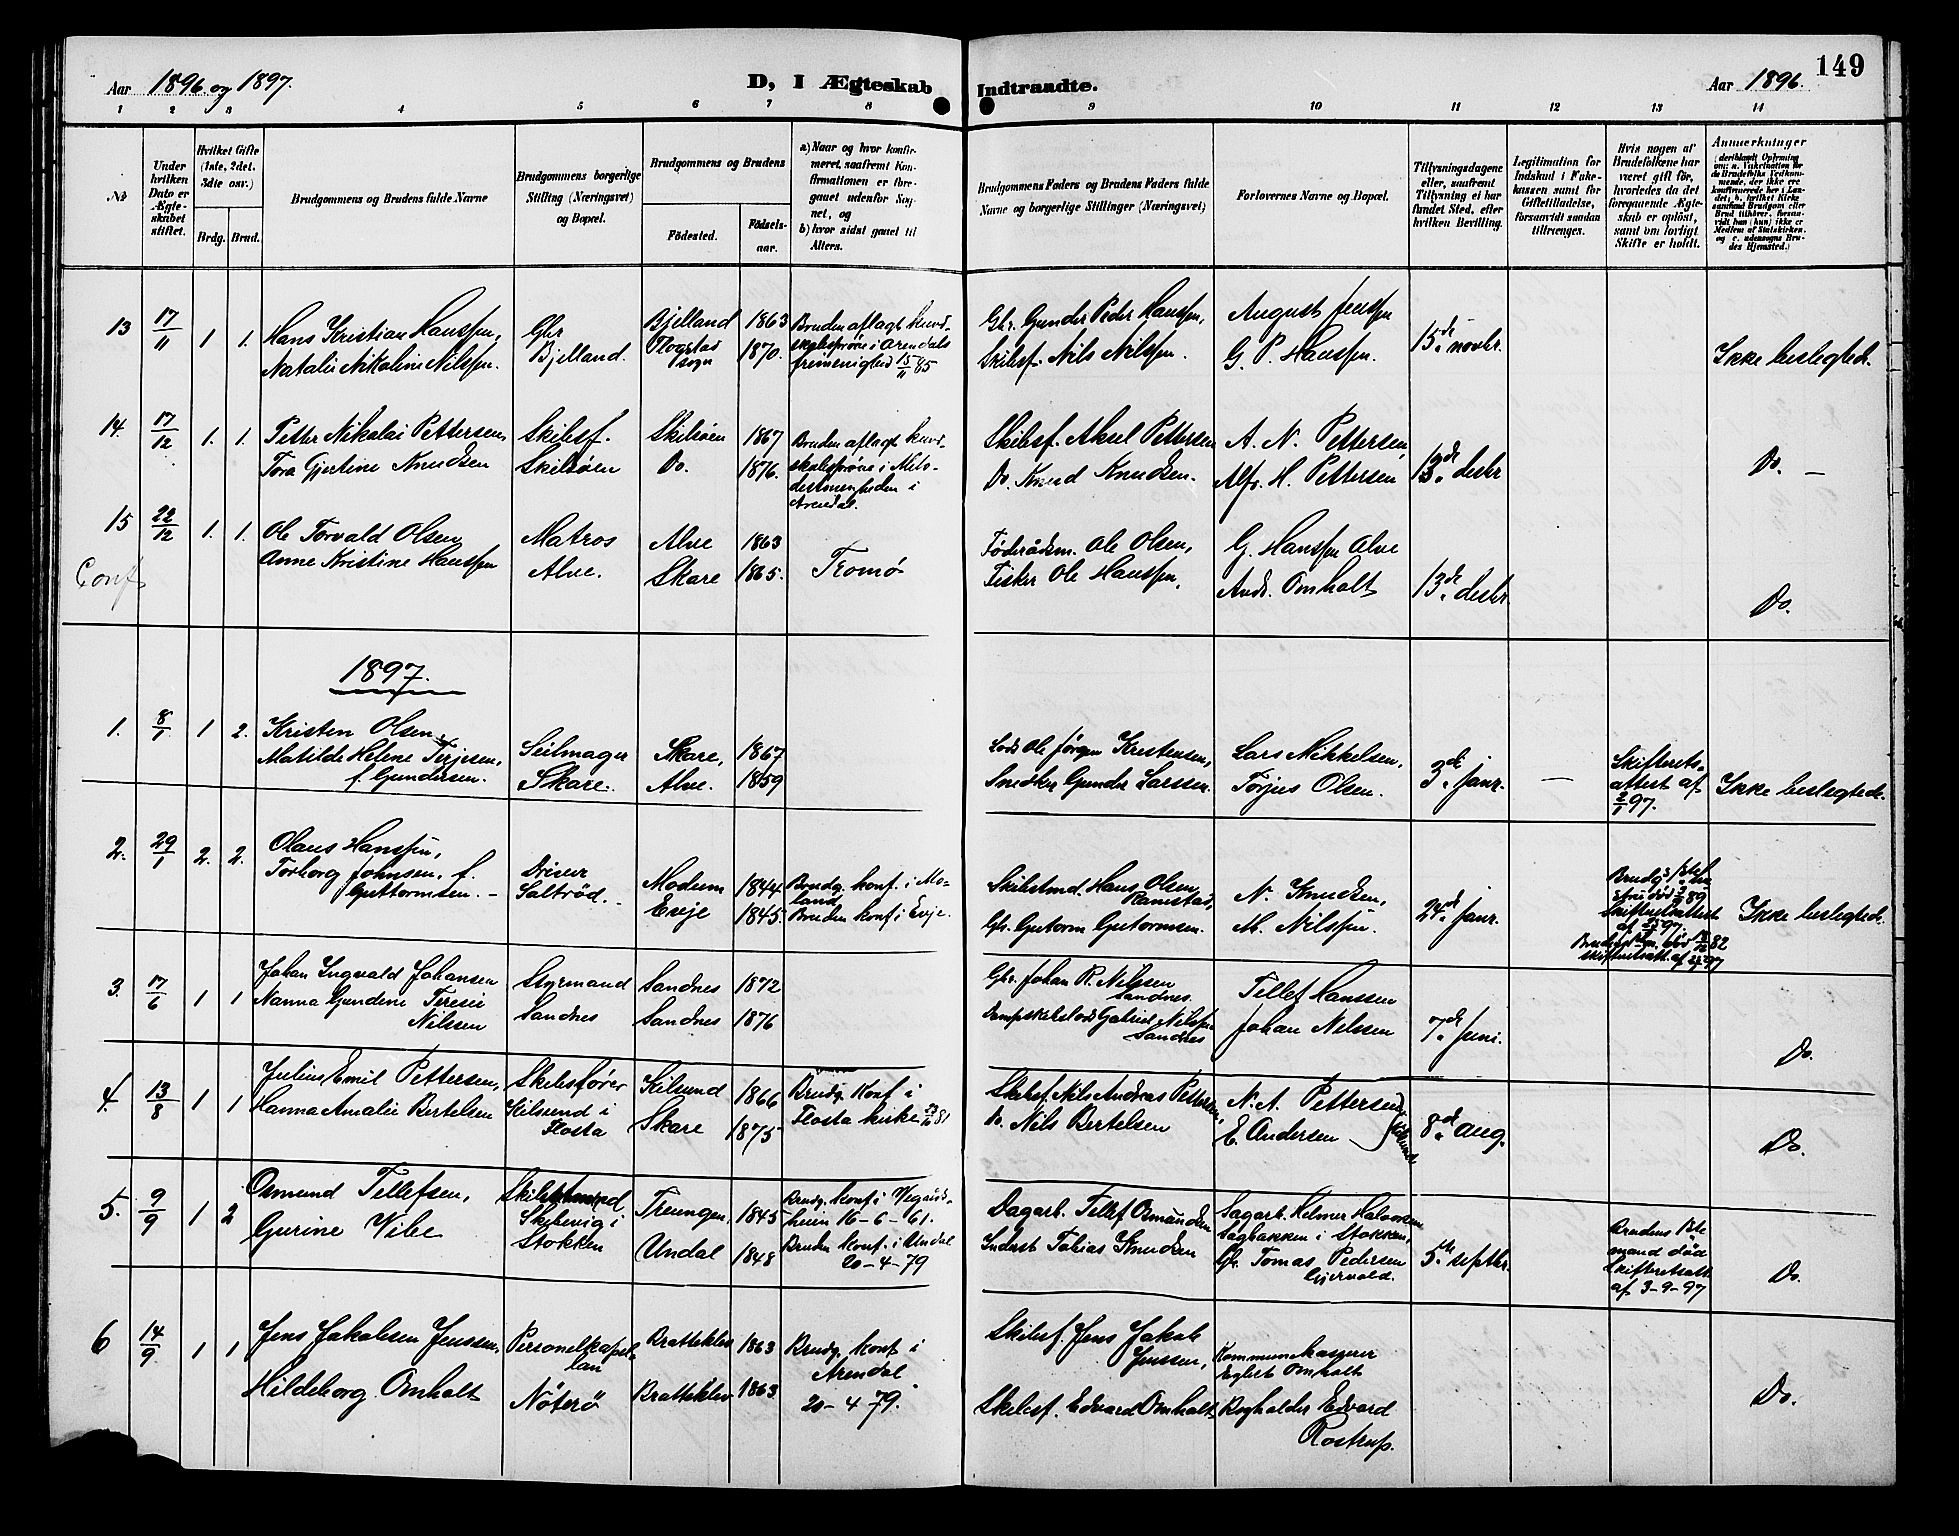 Aar 1896 og 1897.
D, I Ægteskab Indtraadte.
Aar 1896.
149
1 2 3 4 5 6 7 8 9 10 11 12 13 14
No
Under hvilken Dato er Ægteskabet stiftet.
Hvilket Gifte (1ste, 2det, 3die osv.)
Brdg. Brud.
Brudgommens og Brudens fulde Navne
Brudgommens borgerlige Stilling (Næringsvei) og Bopæl.
Brudgommens og Brudens
Födested.
Födselsaar.
a) Naar og hvor konfirmeret, saafremt Konfirmationen er foregaaet udenfor Sognet, og
b) hvor sidst gaaet til Alters.
Brudgommens Faders og Brudens Faders fulde Navne og borgerlige Stillinger (Næringsvei)
Forlovernes Navne og Bopæl.
Tillysningsdagene eller, saafremt Tillysning ei har fundet Sted, efter hvilken Bevilling.
Legitimation for Indskud i Enkekassen samt for Giftetilladelse, forsaavidt saadan tiltrænges.
Hvis nogen af Brudefolkene har været gift før, hvorledes da det foregaaende Ægteskab er oplöst, samt om lovligt Skifte er holdt.
Anmærkninger
13 17/11 1 1.
Hans Kristian Hanssen,
Natalie Nikoline Nilssen.
Gbr
Bjelland.
Bjelland 1863
Flogstad sogn 1870.
Bruden aflagt kundskabsprøve i Arendals frimenighed 15/11 85
Gbr. Gunder Peder Hanssen,
Skibsf. Nils Nilssen.
August Jenssen
G. P. Hanssen.
15de novbr.
Ikke beslegtede.
14. 17/12 1. 1.
Petter Nikolai Pettersen,
Tora Gjertine Knudsen
Skibsf.
Skilsøen
Skilsøen 1867
Do. 1876.
Bruden aflagt kundskabsprøve i Metodistmenigheden i Arendal.
Skibsf. Aksel Pettersen
Do. Knud Knudsen.
A. N. Pettersen,
Alfr. H. Pettersen
13de desbr
Do. –
15 22/12 1. 1.
Conf
Ole Torvald Olsen
Anne Kristine Hanssen
Matros
Alve.
Alve 1863
Skare 1865.
Tromø
Føderådsm. Ole Olsen,
Fisker Ole Hanssen,
G. Hanssen Alve
Andr. Omholt
13de desbr.
Do.
1897.
1. 8/1 1 2.
Kristen Olsen,
Matilde Helene Terjesen,
f. Gundersen.
Seilmager
Skare.
Skare, 1867
Alve. 1859
Lods Ole Jørgen Kristensen,
Snedker Gunder Larssen.
Lars Mikkelsen,
Torjus Olsen.
3de janr.
—
Skifteretsattest af 2/1 97.
Ikke beslegtede.
2. 29/1 2. 2.
Olaus Hanssen,
Torborg Johnsen, f.
Guttormsen. –
Driver
Saltrød.
Modum 1844
Evje 1845
Brudg. konf. i Moland,
Bruden konf. i Evje.
Skibstmd. Hans Olsen Ramstad,
Gbr. Gutorm Gutormsen.
N. Knudsen,
M. Nilssen.
24de janr.
Ikke beslegtede.
3. 17/6 1 1
Johan Ingvald Johansen
Nanna Gundine Teresie
Nilssen
Styrmand
Sandnes
Sandnes 1872
Sandnes 1876
Gbr. Johan R. Nilssen
Sandnes.
Dampskibslods Gabriel Nilssen
Sandnes
Tellef Hanssen
Johan Nilssen
7de juni.
Do.
4. 13/8 1 1
Julius Emil Pettersen,
Hanna Amalie Bertelsen
Skibsfører
Kilsund i
Flosta
Kilsund 1866
Skare 1875
Brudg. Konf i
Flosta kirke 81
Skibsf. Nils Andreas Pettersen,
Do. Nils Bertelsen
N. A. Pettersen
E. Andersen
8de aug.
Do.
5. 9/9 1 2
Osmund Tellefsen,
Gurine Vibe
Skibstmd
Skibevig i
Stokken
Treungen, 1845
Undal 1848
Brudg. konf. i Vegaardsheien 16-6-61.
Bruden Konf. i Undal
20-4-79
Dagarb. Tellef Osmundsen
Inderst Tobias Knudsen
Sagarb. Helmer Halvorsen
Sagbakken i Stokken,
Gbr. Tomas Pedersen
Gjervold.
5te septbr.
Brudens 1ste
mand død
Skifteretsatt.
af 3-9-97
Do.
6 14/9 1 1
Jens Jakobsen Jenssen,
Hildeborg Omholt
Personelkapellan
Nöterö
Bratteklev 1863
Bratteklev 1863
Brudg. konf i
Arendal
20-4 79.
Skibsf. Jens Jakob
Jenssen,
Skibsf. Edvard Omholt
Kommunekasserer
Eglert Omholt
Bogholder Edvard
Rostrup.
Do.